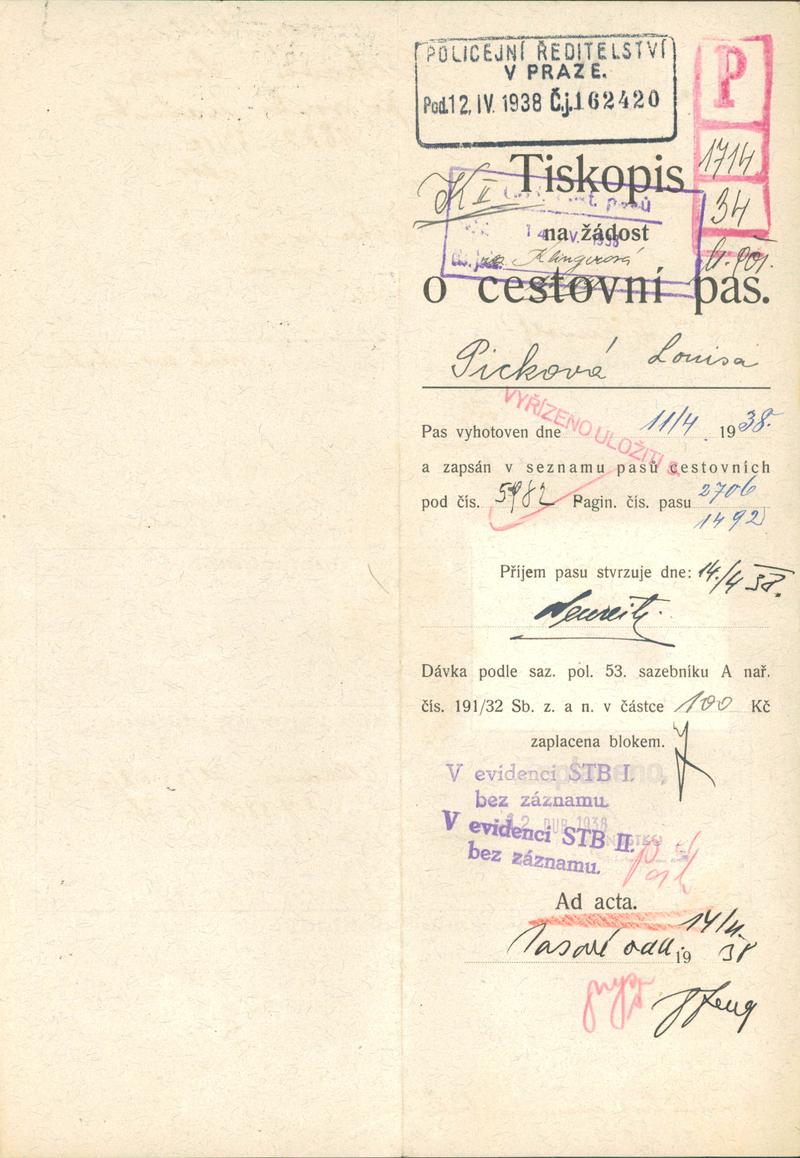 POLICEJNÍ ŘEDITELSTVÍ
V PRAZE.
Pod. 12. IV. 1938 Č.j. 162420
P
1714
34
Tiskopis
K II
pasů
14 V. 1938
na žádost
Klingerová
o cestovní pas.
Picková Louisa
VYŘÍZENO ULOŽITI
Pas vyhotoven dne 11/4 1938.
a zapsán v seznamu pasů cestovních
pod čís. 5982 Pagin. čís. pasu 2706
1492
Příjem pasu stvrzuje dne: 14./4 38.
Dávka podle saz. pol. 53. sazebníku A nař.
čís. 191/32 Sb. z. a n. v částce 100 Kč
zaplacena blokem.
zaplaceno,
V evidenci STB I.
bez záznamu.
12 DUB 1938
V evidenci STB II.
bez záznamu.
Ad acta.
14/4
Pasové odd. 19 38